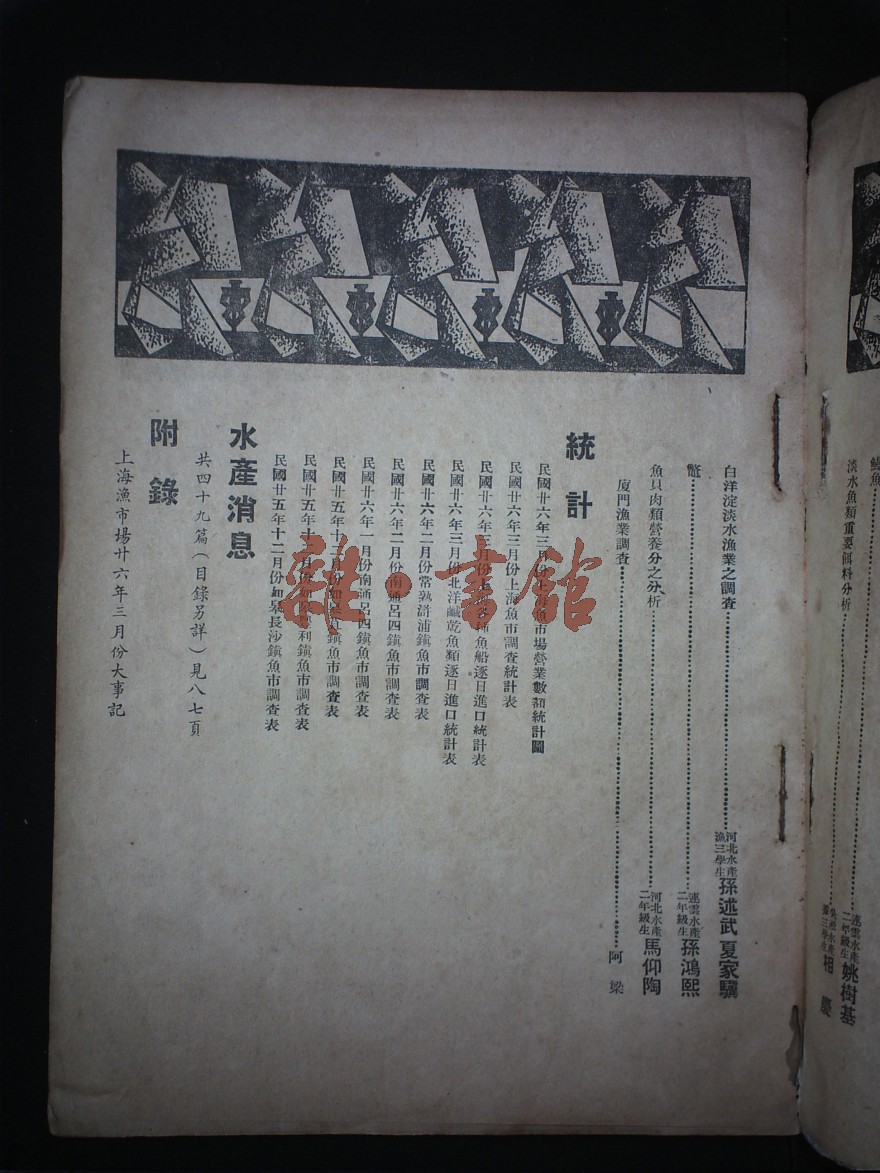 鰻魚
淡水魚類重要餌料分析 連雲水產二年級生 姚樹基
相慶
白洋淀淡水漁業之調查 河北水產漁三學生 孫述武 夏家驥
鼈 連雲水產二年級生 孫鴻熙
魚貝肉類營養分之分析 河北水產二年級生 馬仰陶
廈門漁業調查 阿梁
統計
民國廿六年三月份上海魚市場營業數額統計圖
民國廿六年三月份上海魚市調查統計表
民國廿六年三月份 魚船逐日進口統計表
民國廿六年三月份北洋鹹乾魚類逐日進口統計表
民國廿六年二月份常熟滸浦鎮魚市調查表
民國廿六年二月份南通呂四鎮魚市調查表
民國廿六年一月份南通呂四鎮魚市調查表
民國廿五年十二月份如皋 鎮魚市調查表
民國廿五年十二月份如皋 利鎮魚市調查表
民國廿五年十二月份如皋長沙鎮魚市調查表
水產消息
共四十九篇(目錄另詳)見八七頁
附錄
上海漁市場廿六年三月份大事記
雜·書館